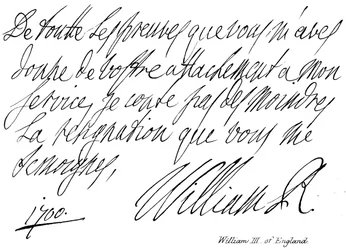 De toutte les preuves que vous m'aves
donne de vostre attachement a mon
service, je conte pas des moindres
La resignation que vous me
temoignes,
1700.
William R.
William III. of England.